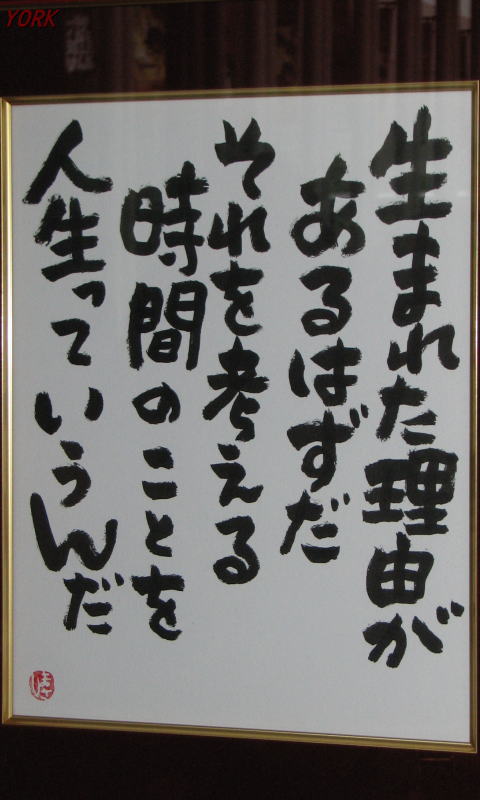 YORK
生まれた理由が
あるはずだ
それを考える
時間のことを
人生っていうんだ